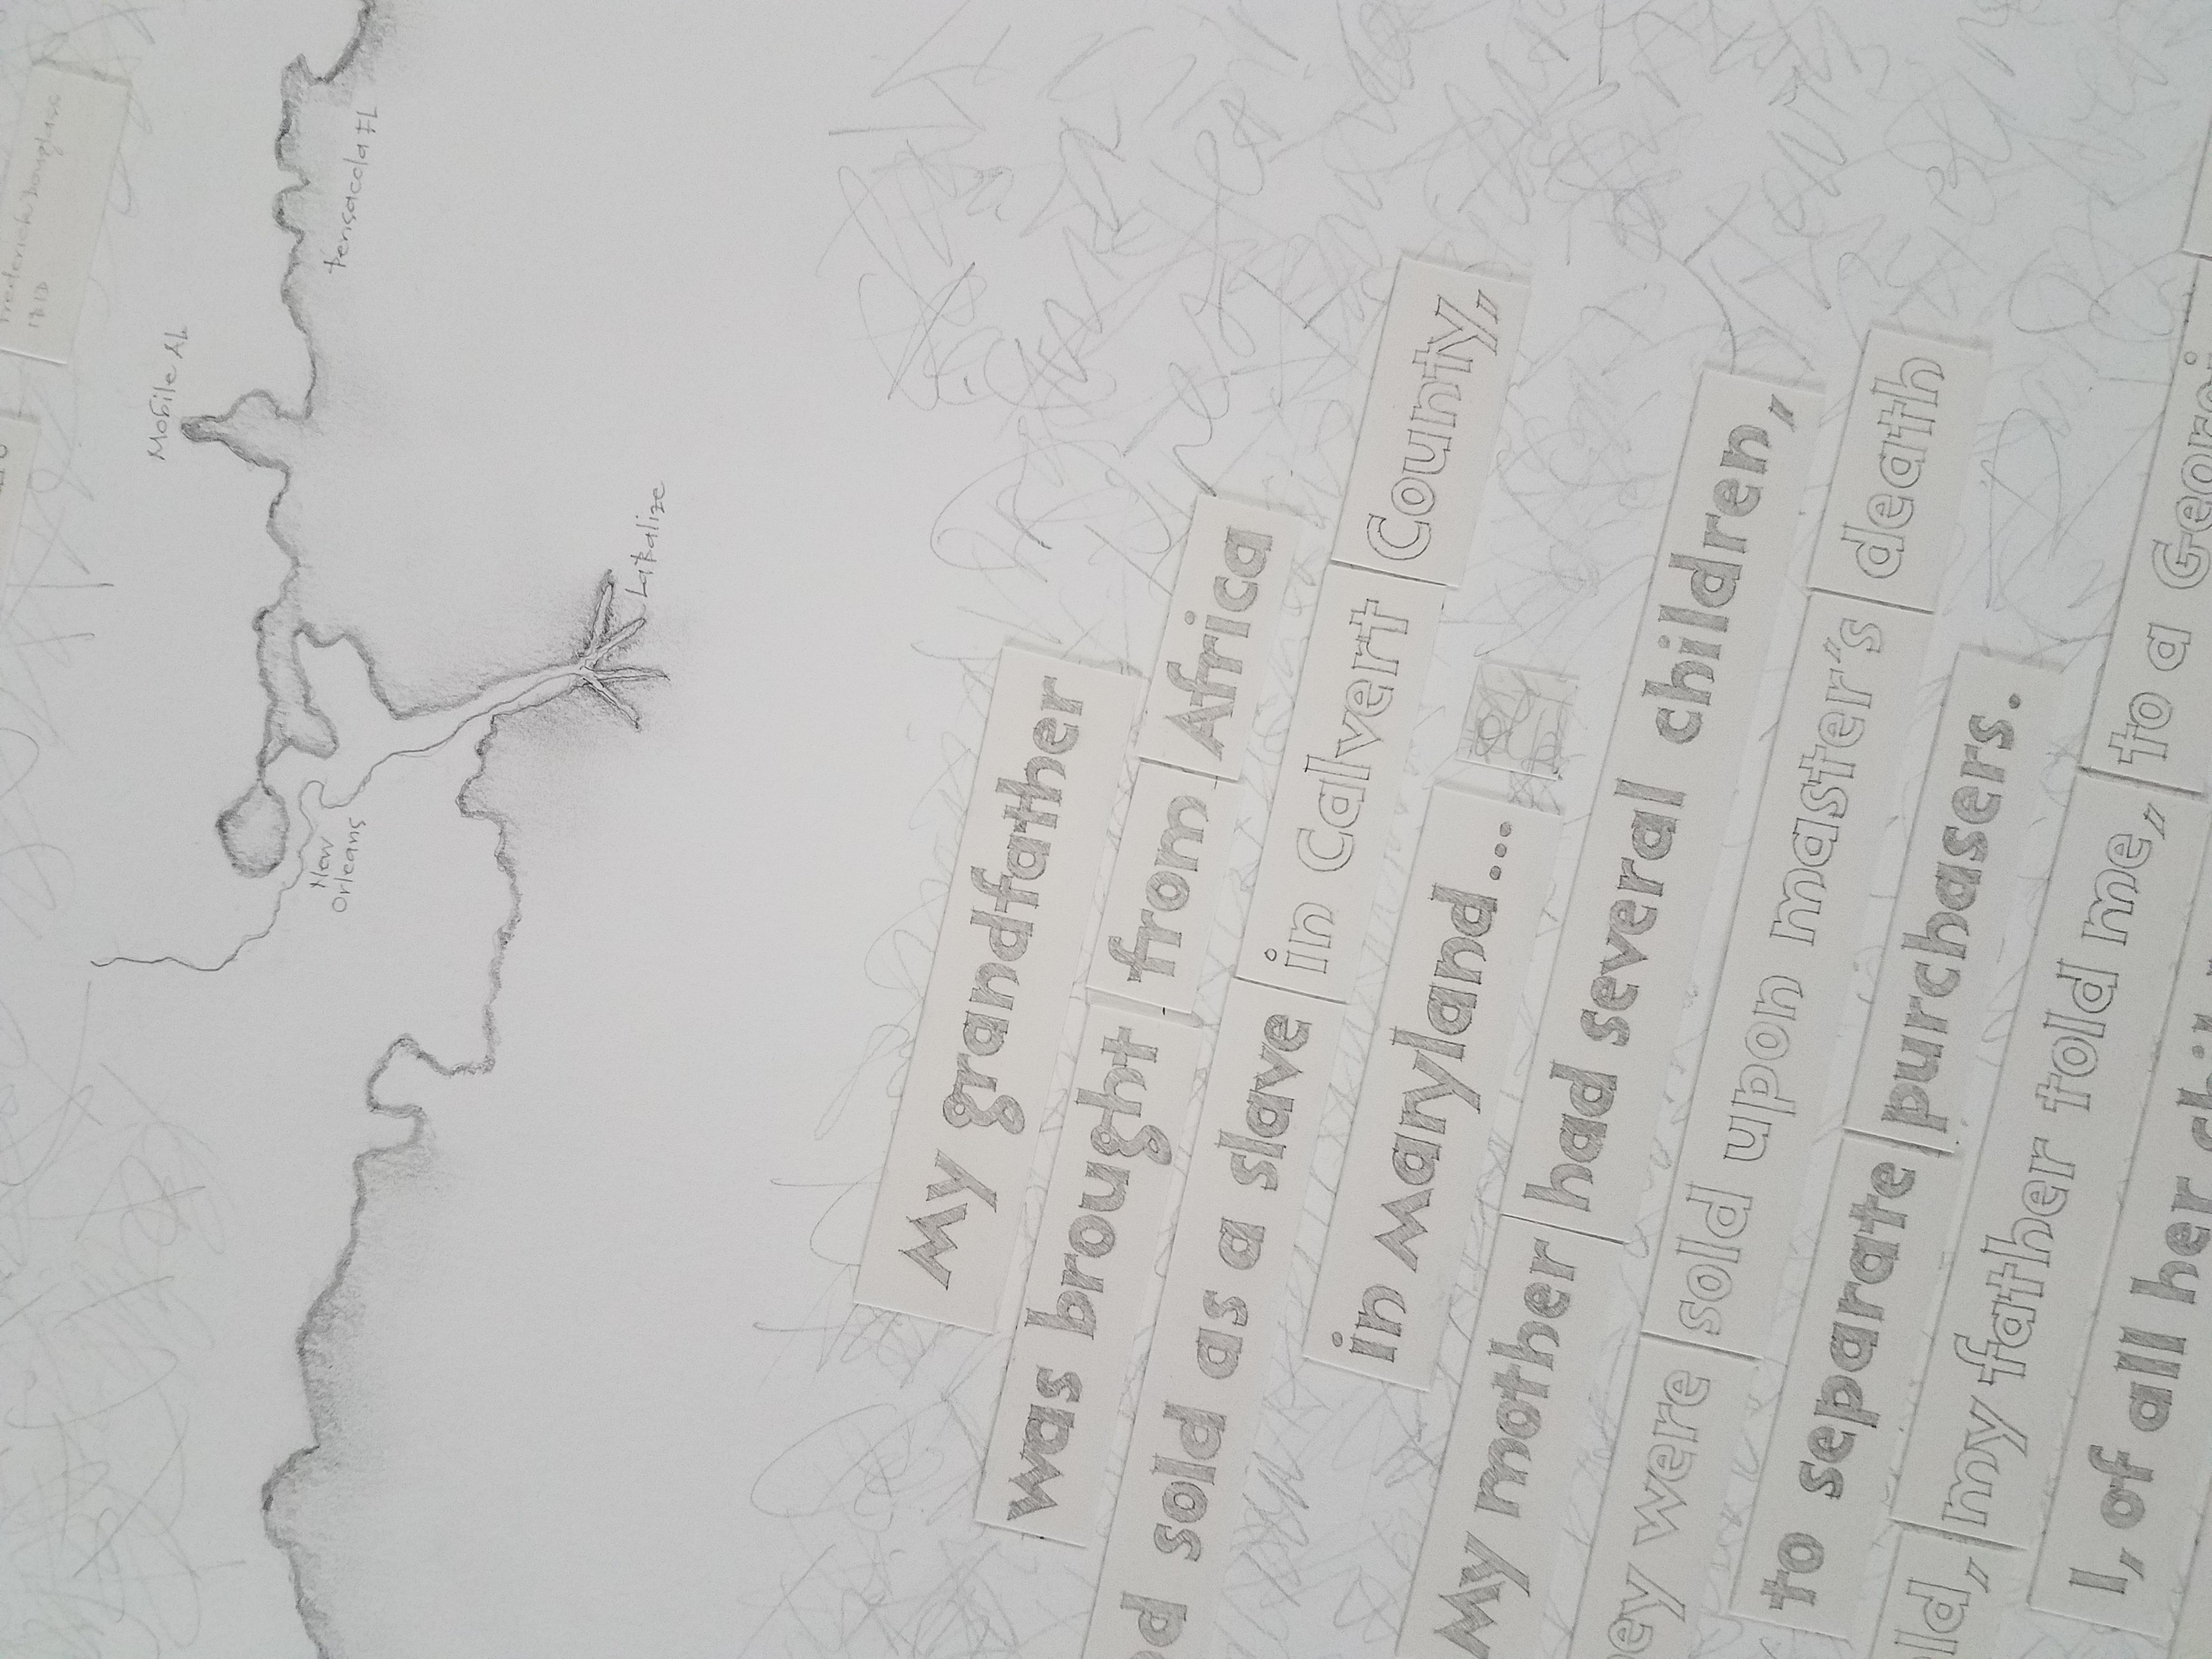 Frederick Douglass
Mobile AL
New
Orleans
Pensacola FL
LaBalize
My grandfather
was brought from Africa
sold as a slave in Calvert County,
in Maryland...
My mother had several children,
were sold upon master's death
to separate purchasers.
my father told me, to a
I, of all her